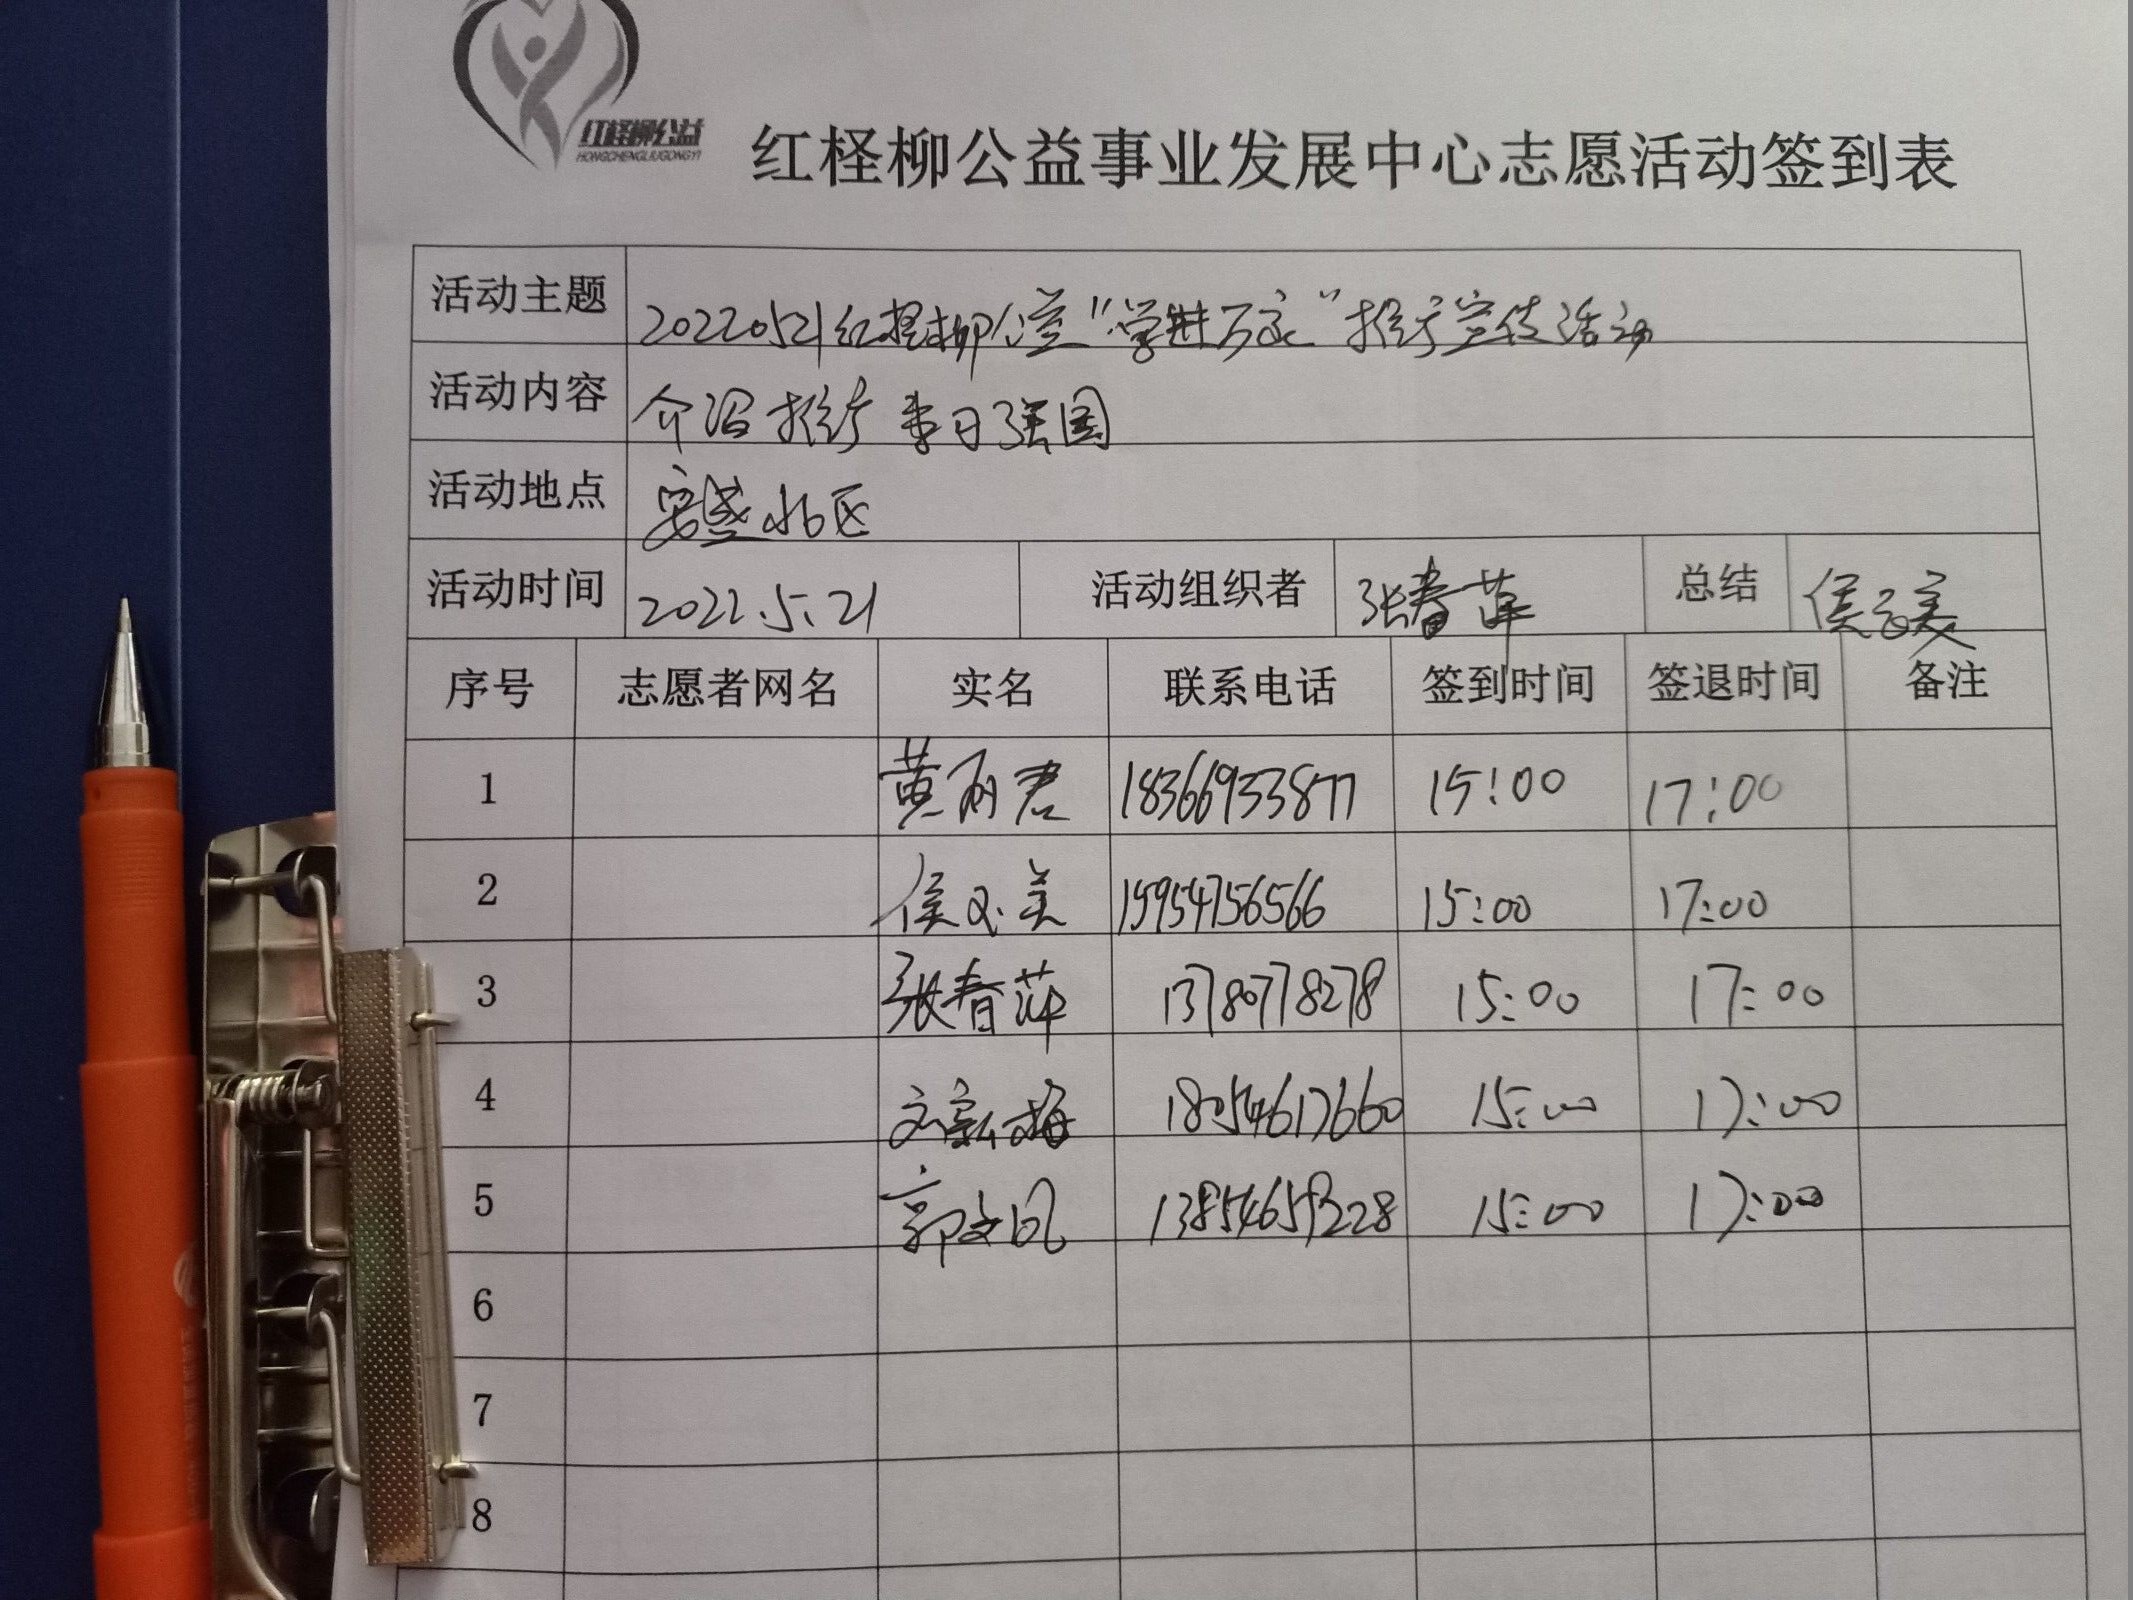 红柽柳公益
HONGCHENGLIUGONGYI
红柽柳公益事业发展中心志愿活动签到表
活动主题 20220521红柽柳公益“学进万家”推广宣传活动
活动内容 介绍推广 学习强国
活动地点 安盛小区
活动时间 2022.5.21 活动组织者 张春萍 总结 侯美
序号 志愿者网名 实名 联系电话 签到时间 签退时间 备注
1 黄雨君 18366933877 15:00 17:00
2 侯美 15954756566 15:00 17:00
3 张春萍 13780778278 15:00 17:00
4 梅 18054617660 15:00 17:00
5 郭文凤 15:00 17:00
6
7
8